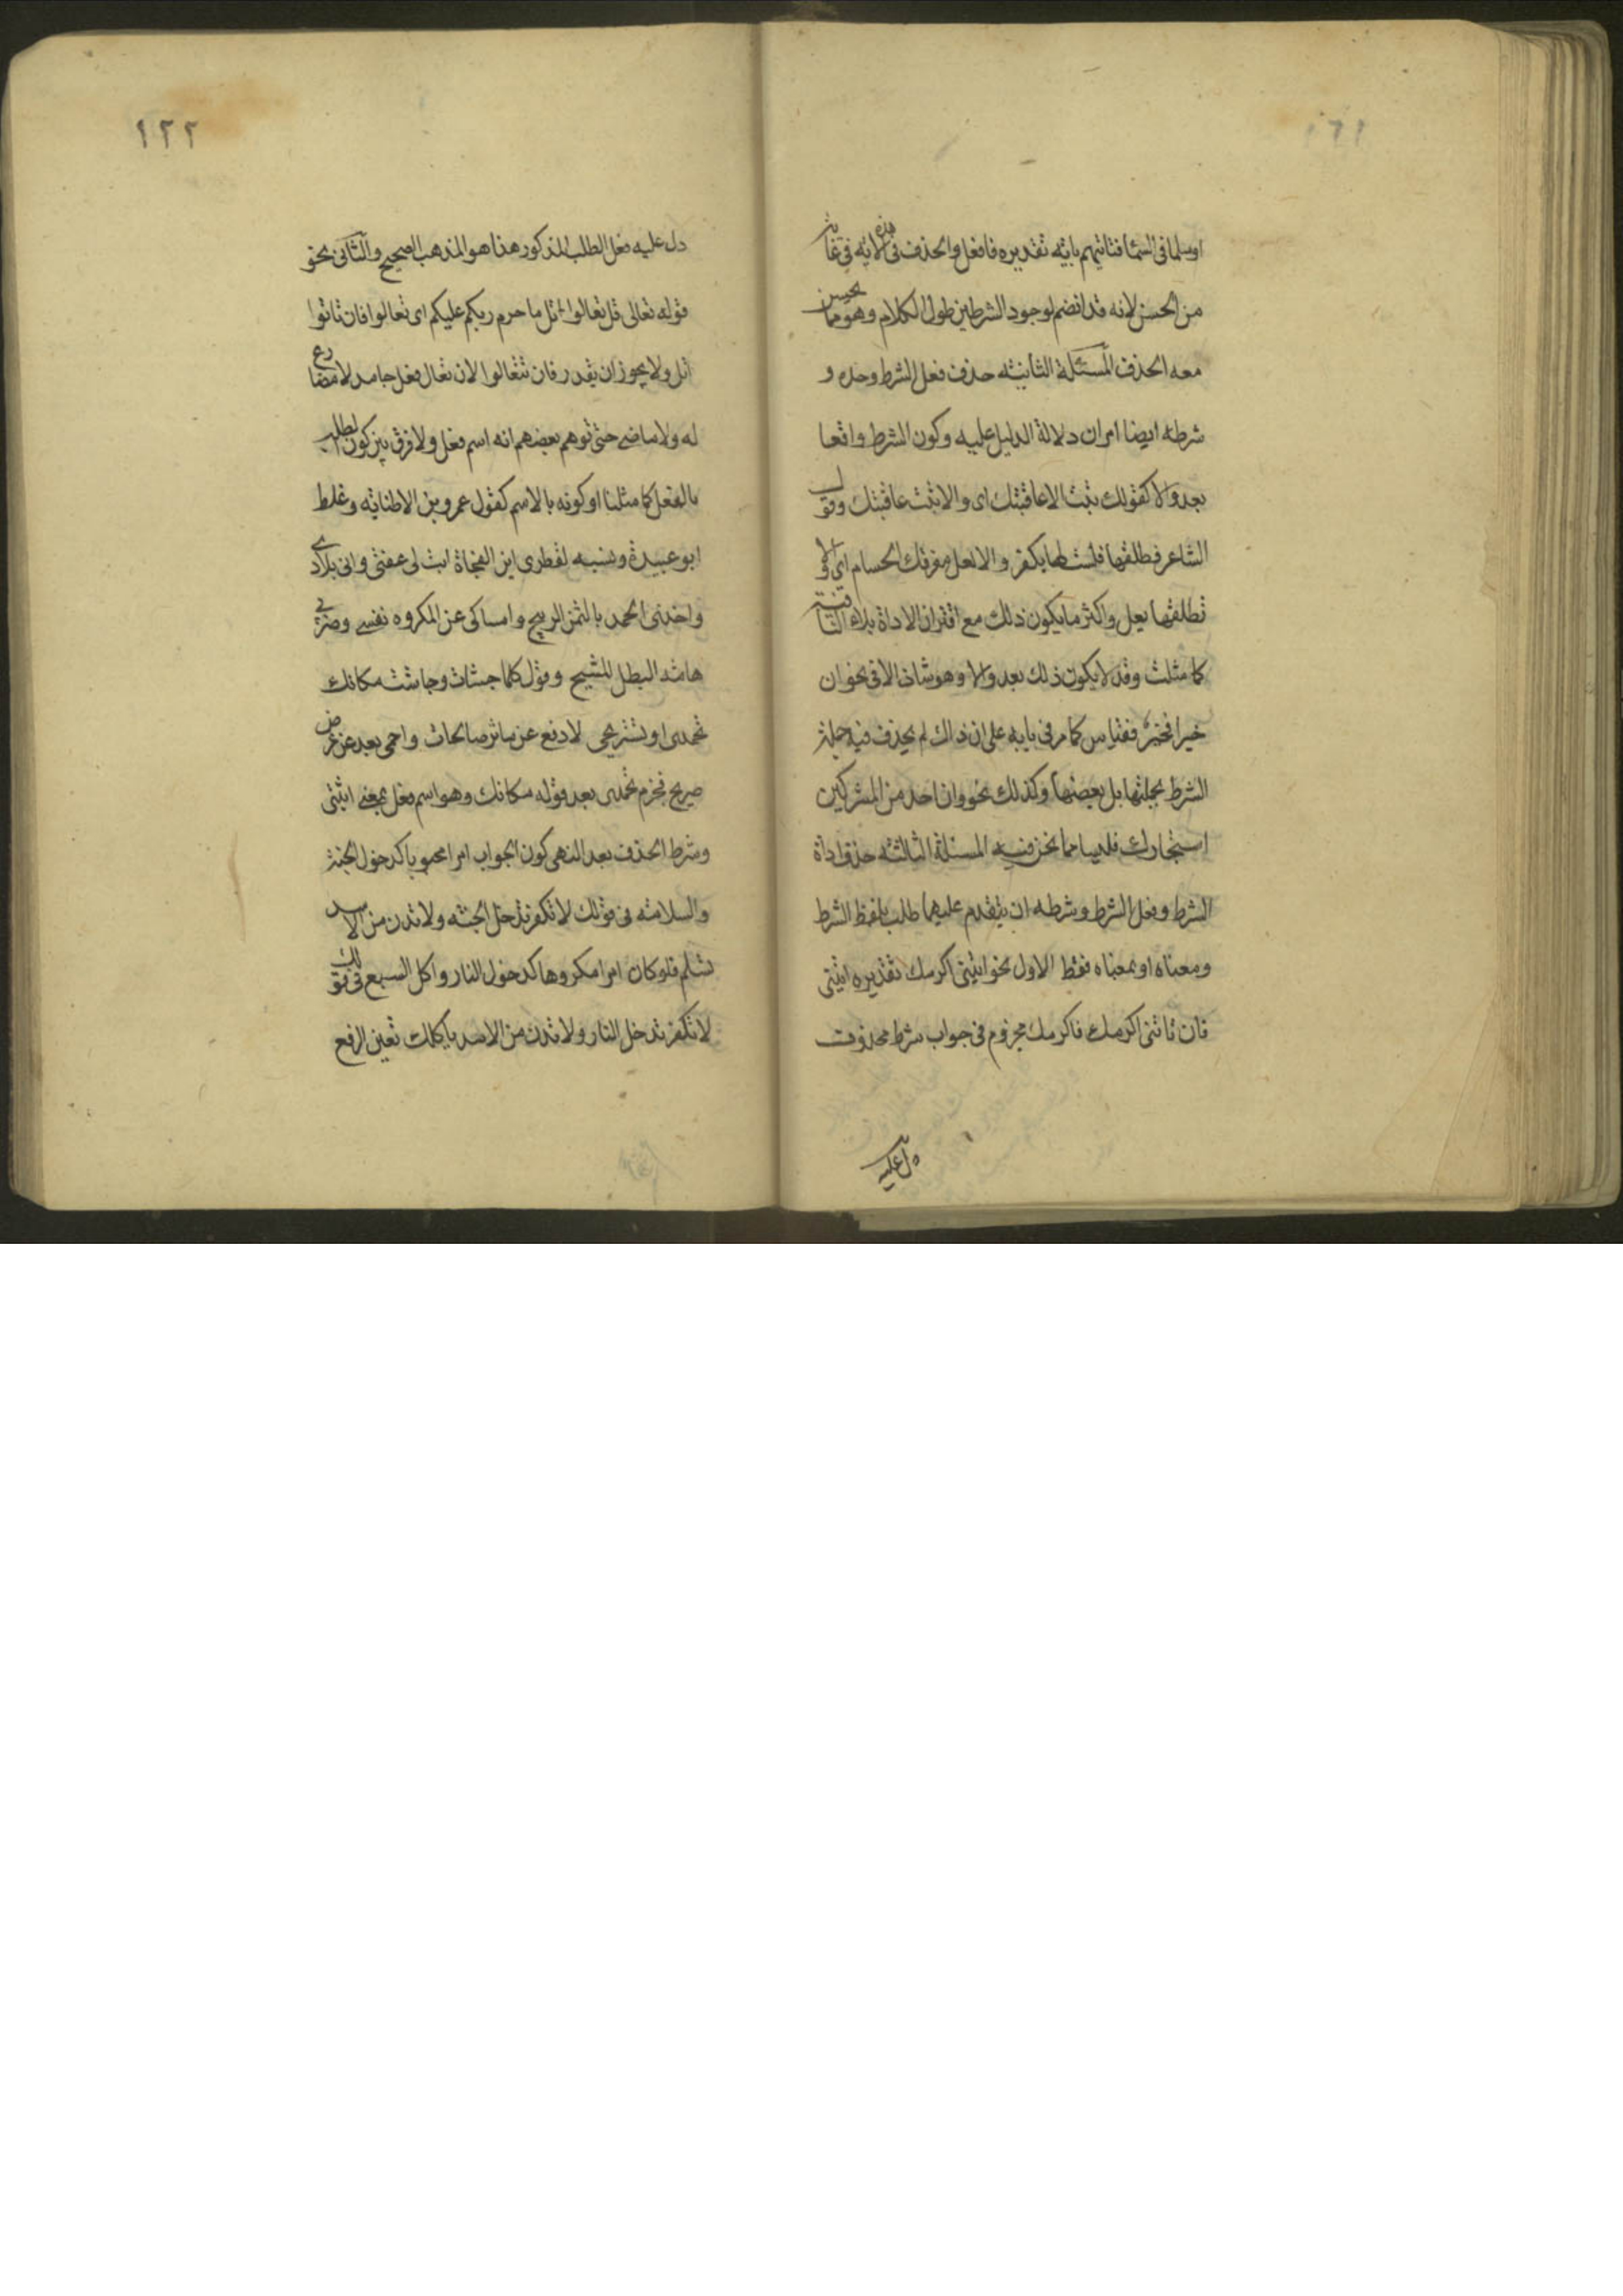 ١٢١
او سلما فى السما فتاتيهم بايته تقديره فافعل والحذف فى هذه الايه فى غايه
من الحسن لانه قد انضم لوجود الشرطين طول الكلام وهو مما يحسن
معه الحذف المسئلة الثانيته حذف فعل الشرط وحده و
شرطه ايضا امران دلالة الدليل عليه وكون الشرط واقعا
بعد والا كقولك تب الا عاقبتك اى والا تبت عاقبتك وقول
الشاعر فطلقها فلست لها بكفر والا يعل مفرقك الحسام اى والا
تطلقها يعل واكثر ما يكون ذلك مع اقتران الاداة بلا النافية
كما مثلت وقد لا يكون ذلك بعد والا وهو شاذ الا فى نحو ان
خيرا فخير فقياس كما مر فى بابه على ان ذاك لم يحذف فيه جملة
الشرط بجملتها بل بعضها وكذلك نحو وان احد من المشركين
استجارك فليسا مما نحن فيه المسئلة الثالثه حذف اداة
الشرط وفعل الشرط وشرطه ان يتقدم عليهما طلب بلفظ الشرط
ومعناه او بمعناه فقط الاول نحو ايتنى اكرمك تقديره ايتنى
فان تاتنى اكرمك فاكرمك مجزوم فى جواب شرط محذوف
دل عليه
١٢٢
دل عليه فعل الطلب المذكور هذا هو المذهب الصحيح والثانى نحو
قوله تعالى قل تعالوا اتل ما حرم ربكم عليكم اى تعالوا فان تاتوا
اتل ولا يجوز ان يقدر فان تتعالوا لان تعال فعل جامد لا مضارع
له ولا ماضى حتى توهم بعضهم انه اسم فعل ولا فرق بين كون الطلب
بالفعل كما مثلنا او كونه بالاسم كقول عمرو بن الاطنايه وغلط
ابو عبيدة ونسبه لقطرى ابن الفجاة ابت لى عفتى وابى بلادى
واخذى الحمد بالثمن الربيح وامساكى عن المكروه نفسى وضربى
هامة البطل المشيح وقول كلما جشات وجاشت مكانك
تحمدى او تستريحى لادفع عن ماثر صالحات واحمى بعد عن عرض
صريح فجزم تحمدى بعد قوله مكانك وهو اسم فعل بمعنى اثبتى
وشرط الحذف بعد النهى كون الجواب امرا محبوبا كدخول الجنة
والسلامته فى قولك لا تكفر تدخل الجنه ولا تدن من الاسد
تسلم فلو كان امرا مكروها كدخول النار واكل السبع فى قولك
لا تكفر تدخل النار ولا تدن من الاسد ياكلك تعين الرفع